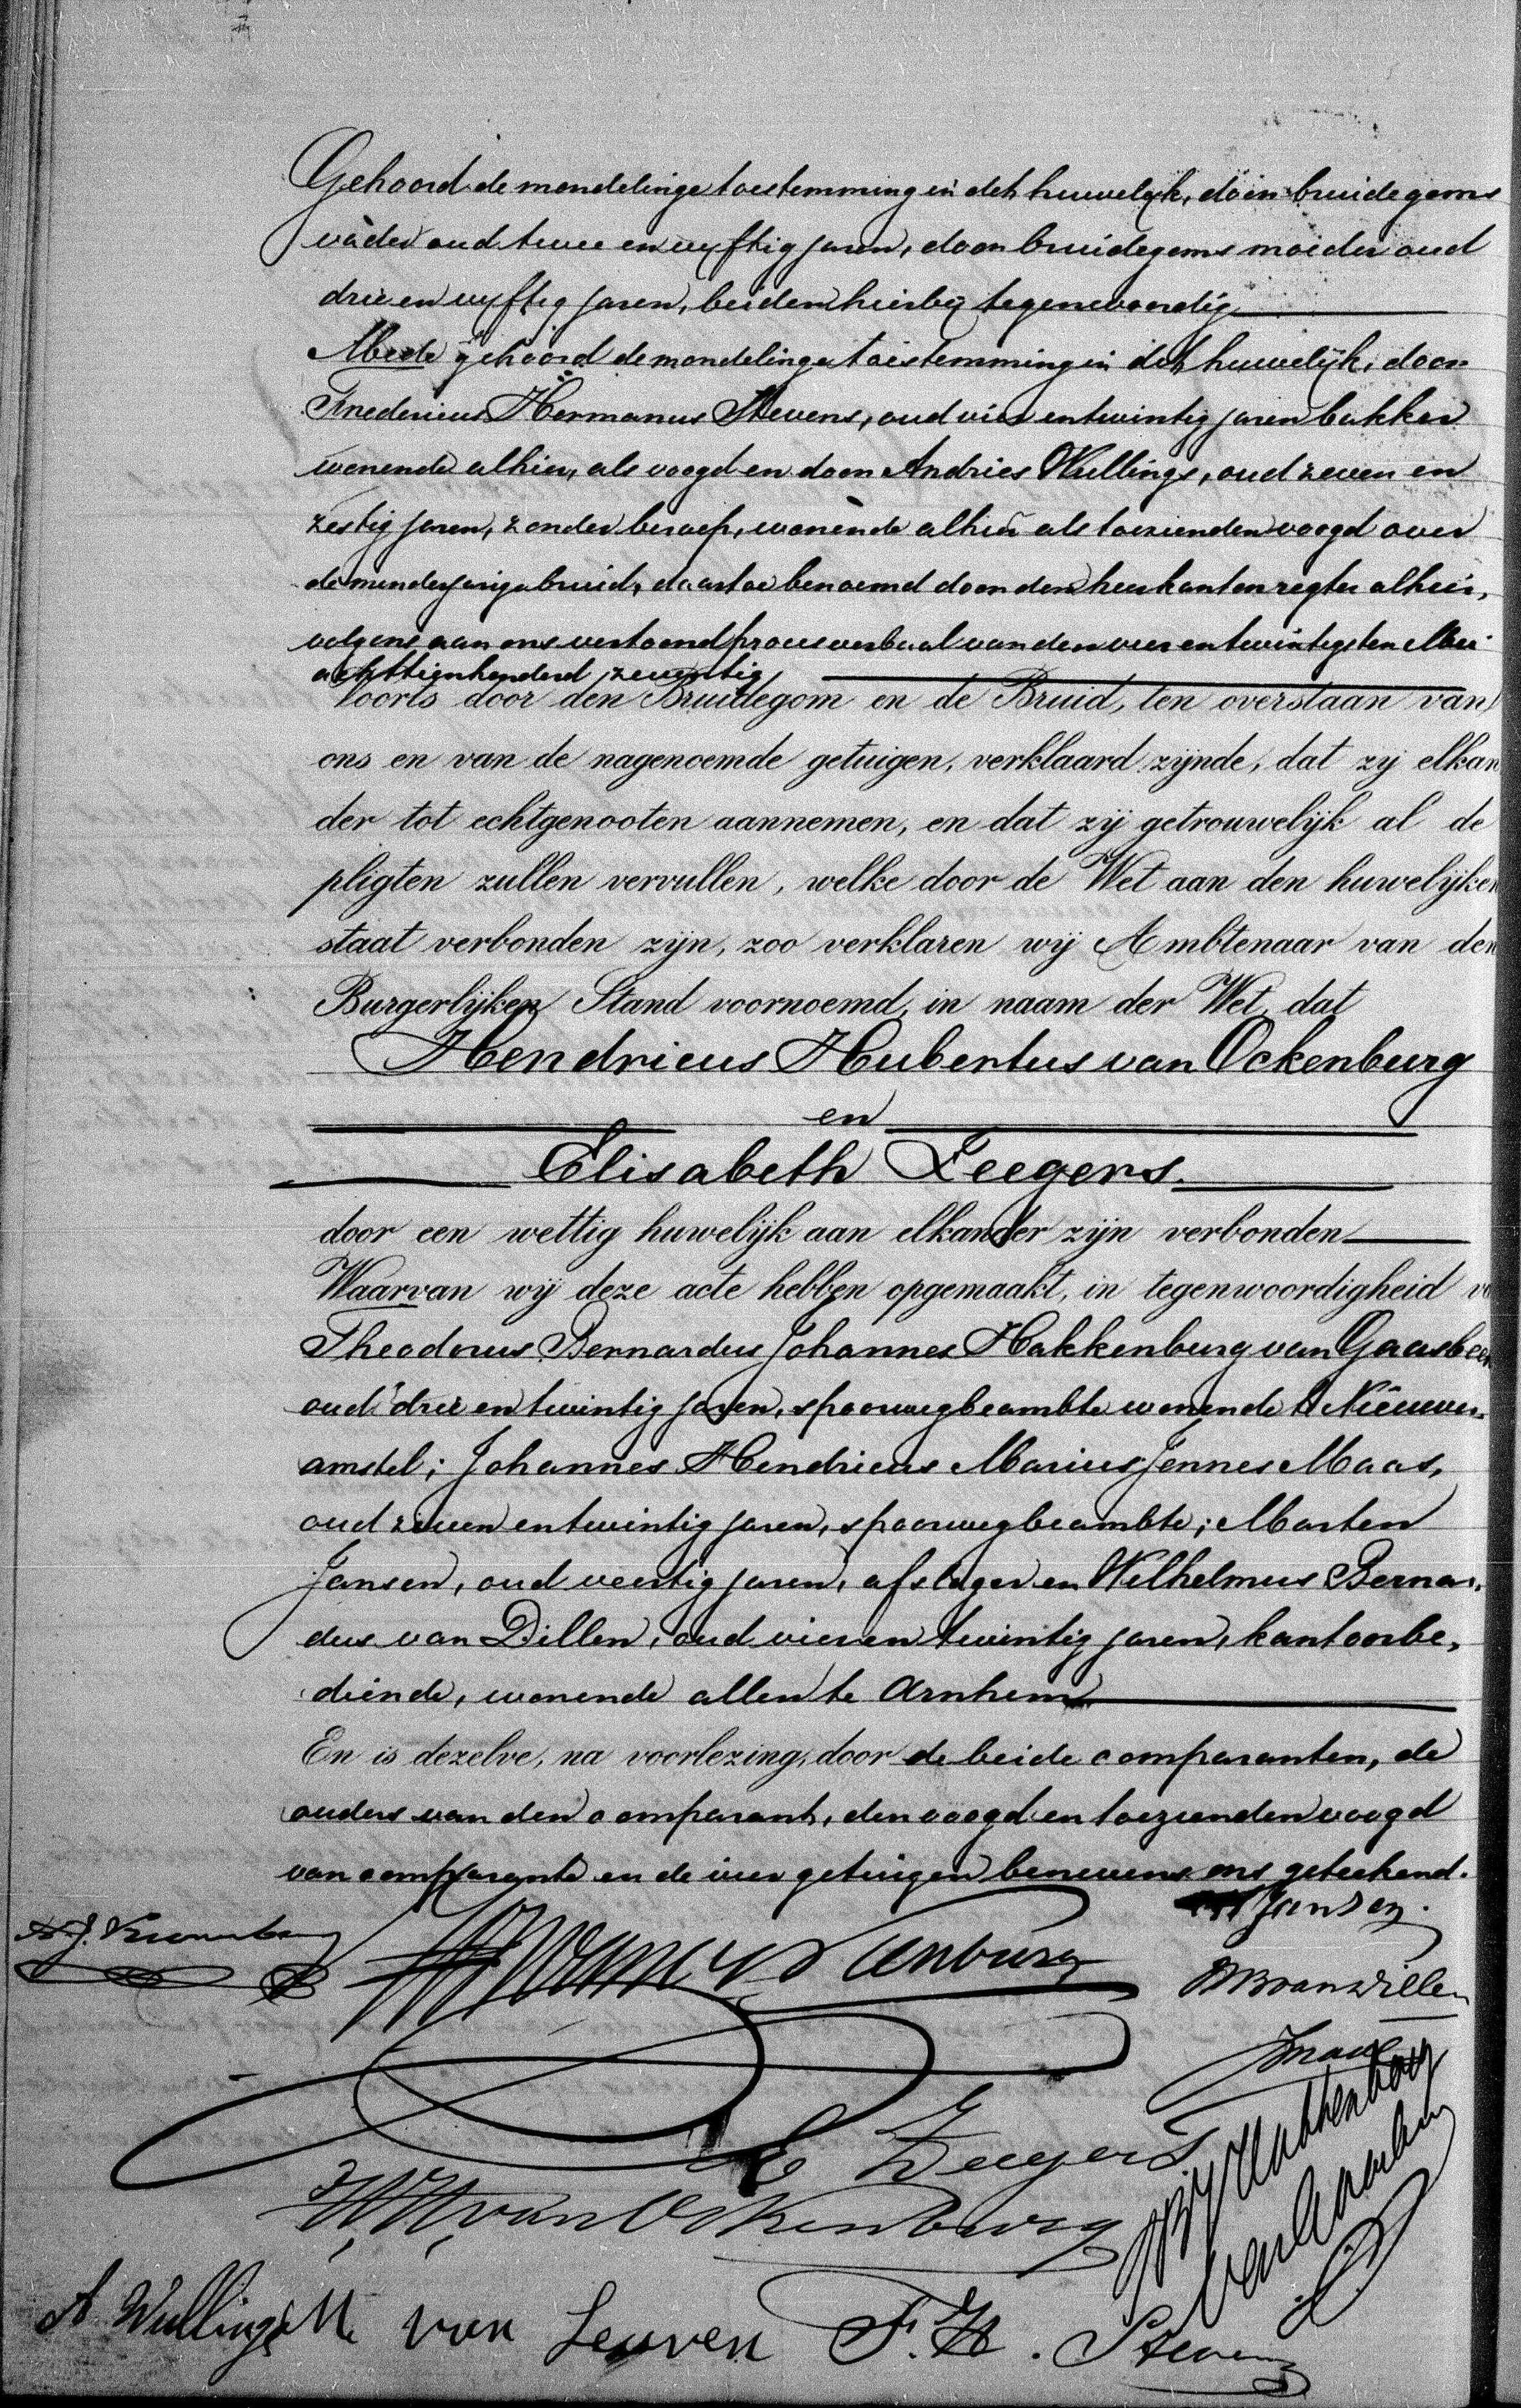 Gehoord de mondelinge toestemming in dit huwelijk, door bruidegoms
vader oud twee en vyftig jaren, door bruidegoms moeder oud
drie en vyftig jaren, beiden hierby tegenwoordig
Mede gehoord de mondelinge toestemming in dit huwelijk, door
Fredericus Hermanus Stevens, oud vier entwintig jaren bakker
wonende alhier, als voogd en door Andries Wullings, oud zeven en
zestig jaren, zonder beroep, wonende alhier als toezienden voogd over
de minderjarige bruid, daartoe benoemd door den heer kantonregter alhier,
volgens aan ons vertoond procesverbaal van den vier entwintigsten Mei
achttienhonderd zeventig
Voorts door den Bruidegom en de Bruid, ten overstaan van
ons en van de nagenoemde getuigen, verklaard zijnde, dat zij elkan
der tot echtgenooten aannemen, en dat zij getrouwelijk al de
pligten zullen vervullen, welke door de Wet aan den huwelijken
staat verbonden zijn, zoo verklaren wij Ambtenaar van den
Burgerlijken Stand voornoemd, in naam der Wet, dat
Hendricus Hubertus van Ockenburg
en
Elisabeth Zeegers.
door een wettig huwelijk aan elkander zijn verbonden
Waarvan wij deze acte hebben opgemaakt, in tegenwoordigheid
Theodorus Bernardus Johannes Hakkenburg van Gaasbeek
oud drie en twintig jaren, spoorwegbeambte wonende te Nieuwer-
amstel; Johannes Hendricus Marius Jennes Maas,
oud zeven entwintig jaren, spoorwegbeambte; Marten
Jansen, oud veertig jaren, afslager en Wilhelmus Bernar-
dus van Dillen, oud vier en twintig jaren, kantoorbe-
diende, wonende allen te Arnhem
En is dezelve, na voorlezing, door de beide comparanten, de
ouders van den comparant, den voogd en toezienden voogd
van comparante en de vier getuigen benevens ons geteekend.
Jansen.
van Ockenburg
WBvanDillen
JMaas
E Zeegers
Hakkenburg
van Gaasbeek
HH van Ockenburg
A Wullings M van Leuven F.H. Stevens